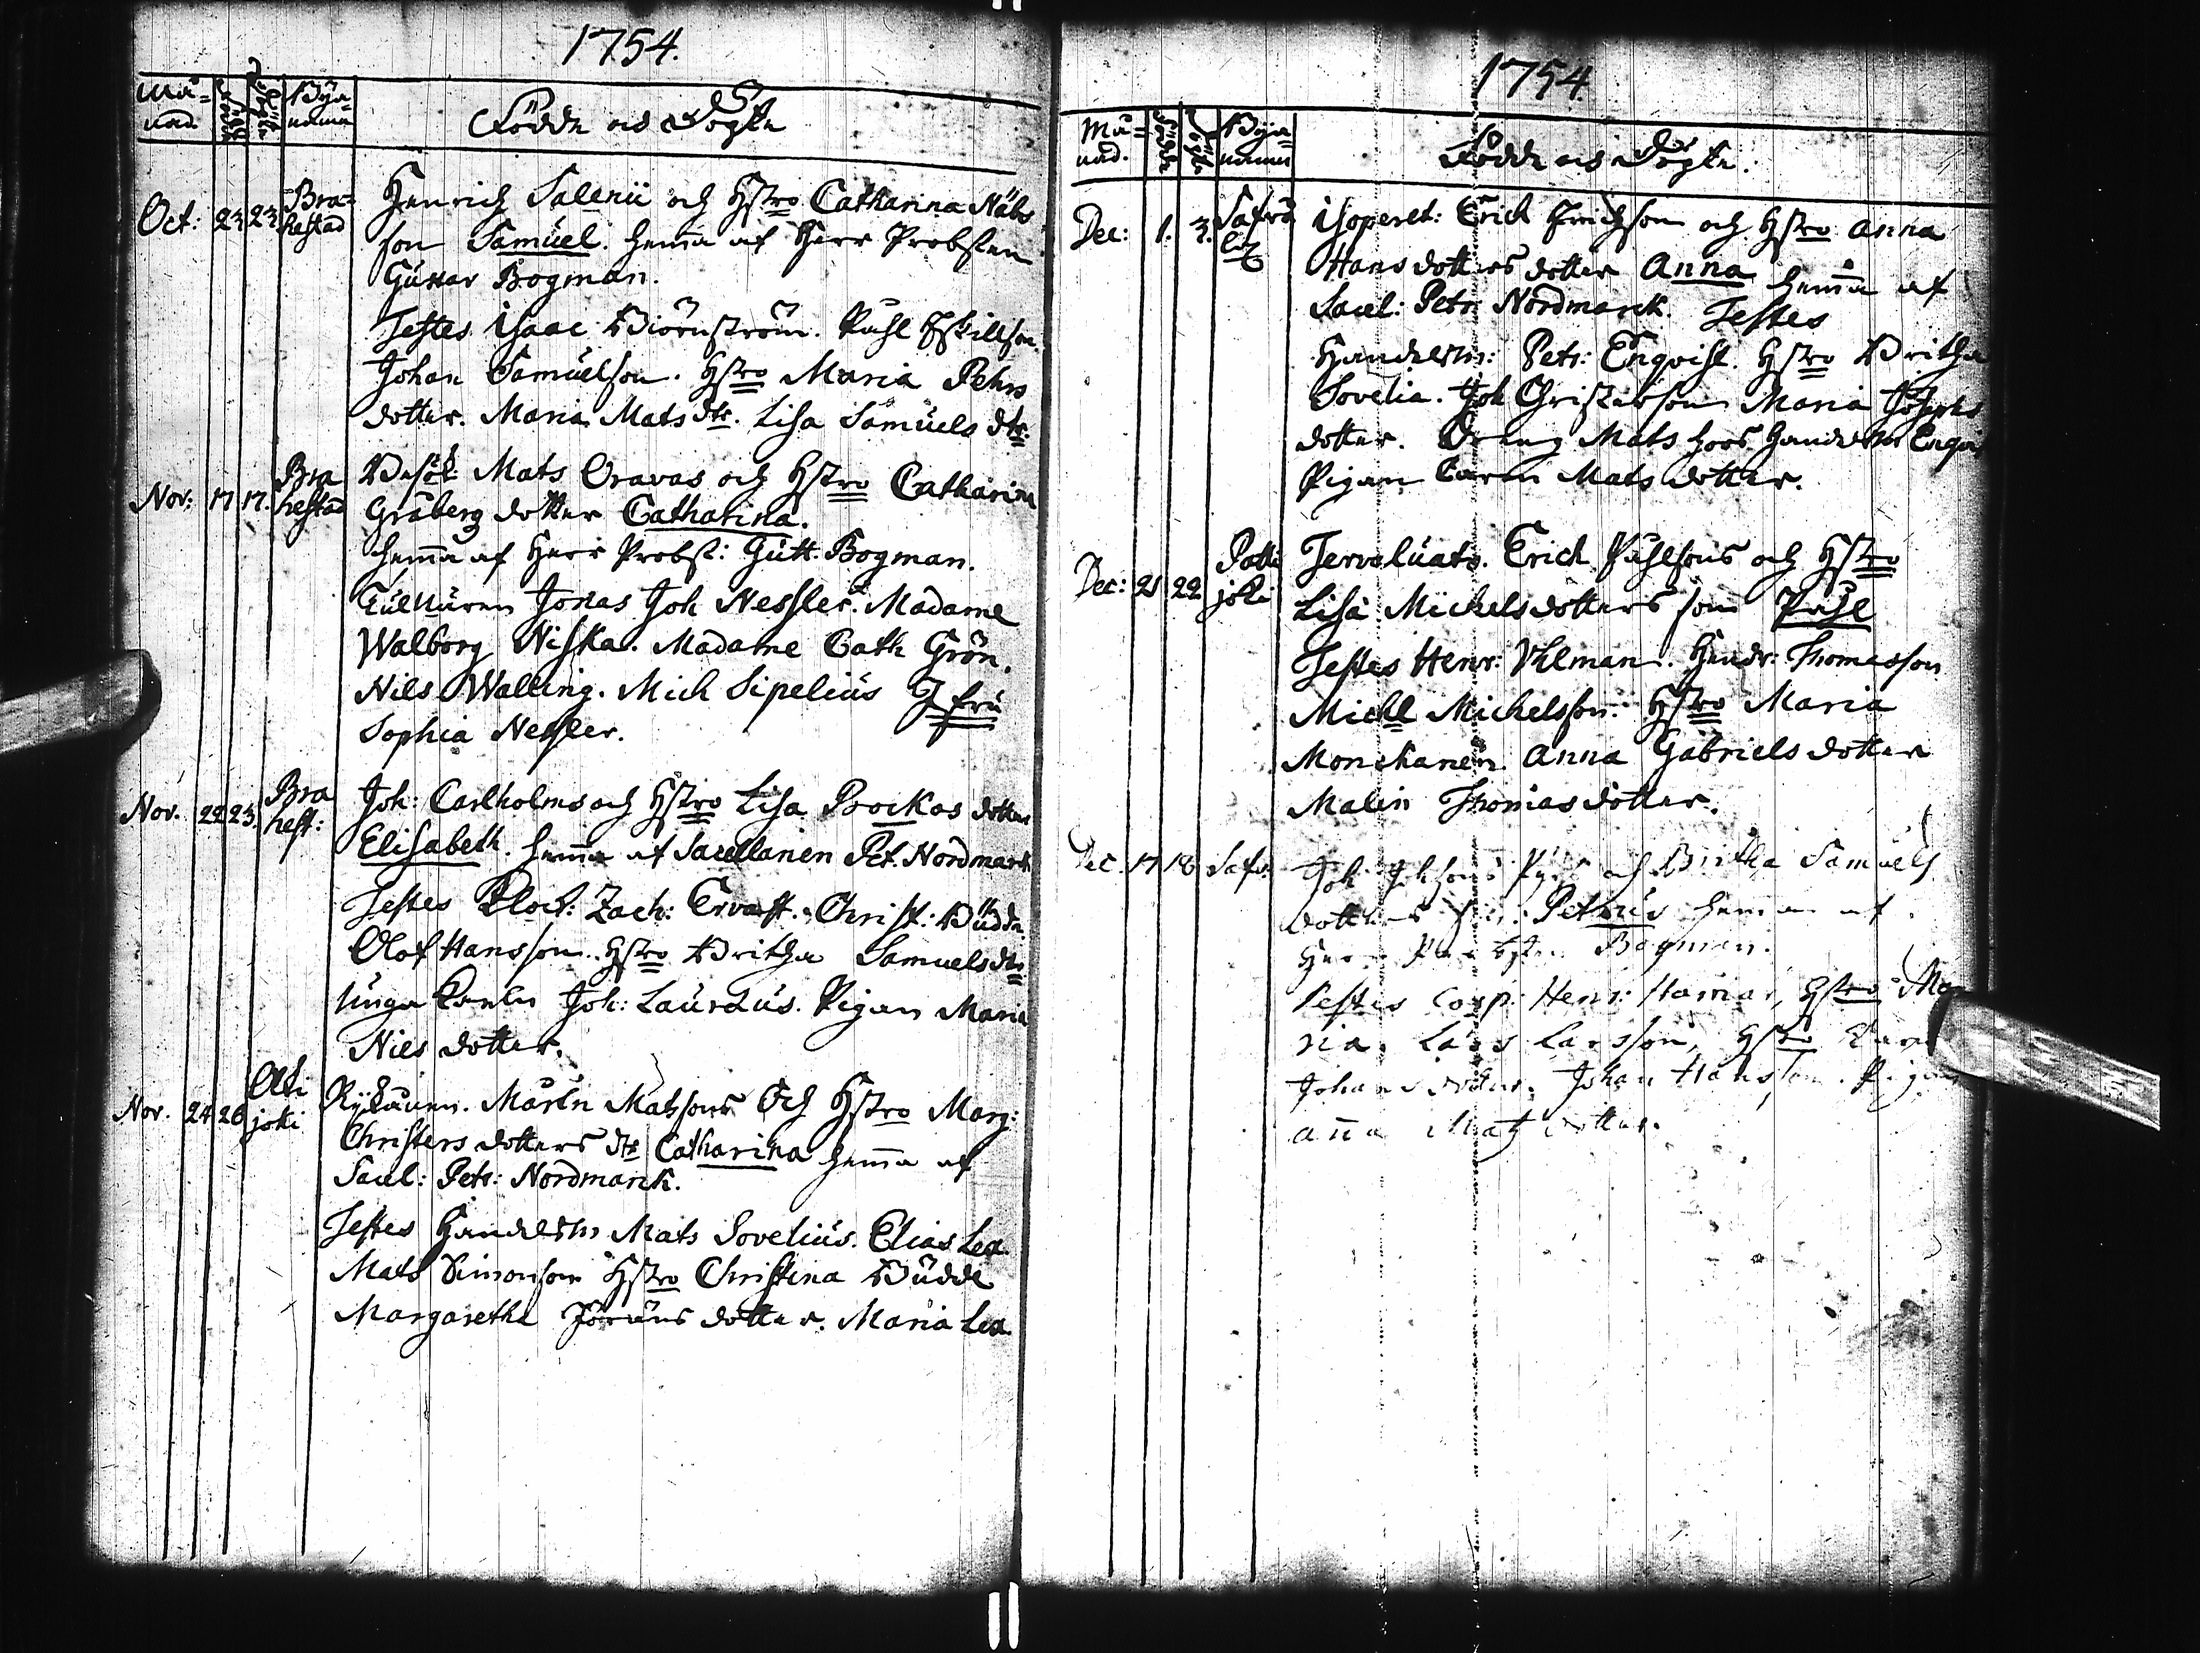 1754.
Må=
nad.
Födde
Döpte
Bÿa
namn
Födde och Döpte
Oct: 23 23 Bra=
hestad
Henrich Salenii och Hstro Catharina Näbs
son Samuel. hemma af Herr Probsten
Gustav Bogman.
Testes Isaac Biörnström. Påhl Eskillson.
Johan Samuelson. Hstro Maria Pehrs
dotter. Maria Mats dtr. Lisa Samuels dtr:
Nov: 17 17. Bra
hestad
Besök: Mats Oravas och Hstro Catharina
Gråberg dotter Catharina.
hemma af Herr Probst: Gust. Bogman.
Jonas Joh Nessler. Madame
Walborg Niska. Madame Cath Grön.
Nils Walling. Mich Sipelius Jfru
Sophia Nessler.
Nov. 22 23. Bra
hest:
Joh: Carlholms och Hstro Lisa Brockas dotter
Elisabeth. hemma af Sacellanen Pet. Nordmark
Testes Zach: Ervast. Christ: Budde.
Olof Hansson. Hstro Britha Samuelsdtr
unga Joh: Lauræus. Pigan Maria
Niels dotter.
Nov. 24 26 Olki
joki
Martin Matssons Och Hstro Marg:
Christers dotters dtr Catharina hemma af
Sacel: Petr: Nordmarck.
Testes Handelsm Mats Sovelius. Elias Lea.
Mats Simonson Hstro Christina Budde
Margaretha Jörans dotter. Maria Lea.
1754.
Må=
nad.
Födde
Döpte
Bÿa=
namn
Födde och Döpte.
Dec: 1. 3. Salvo
Isoperet: Erich Erichson och Hstro Anna
Hans dotters dotter Anna hemma af
Sacel: Petr Nordmarck. Testes
Handelsm: Petr: Enqvist. Hstro Britha
Sovelia. Joh Christerson Maria Josephs
dotter. Dreng Mats hoos Handelsm Enqvi
Pigan Carin Mats dotter.
Dec: 21 22 Patti
joki
Tervaluato. Erich Påhlsons och Hstro
Lisa Michelsdotters son Påhl
Testes Henr: Uhlman. Hendr: Thomasson
Michl Michelsson. Hstro Maria
Monckanen. Anna Gabriels dotter
Malin Thomas dotter.
Dec. 17 18 Salo:
Joh: Johsons och Britha Samuels
dotters son Petrus hemma af
Herr Probsten Bogman.
Testes Corp: Henr: Hamar, Hstro Ma
ria. Lars Larsson, Hstro
Johans dotter. Johan Hansson. Pigan
Anna Mats dotter.